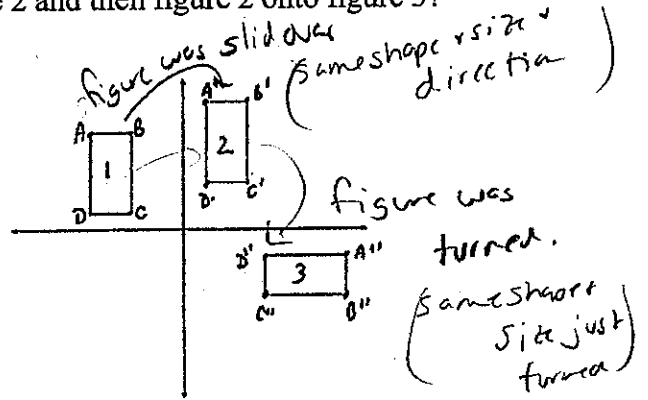 2 and then figure 2 onto figure 3?
figure was slid over
(same shape + size + direction)
A B
1
D C
A' B'
2
D' C'
figure was turned.
D" A"
3
C" B"
(same shape + size just turned)